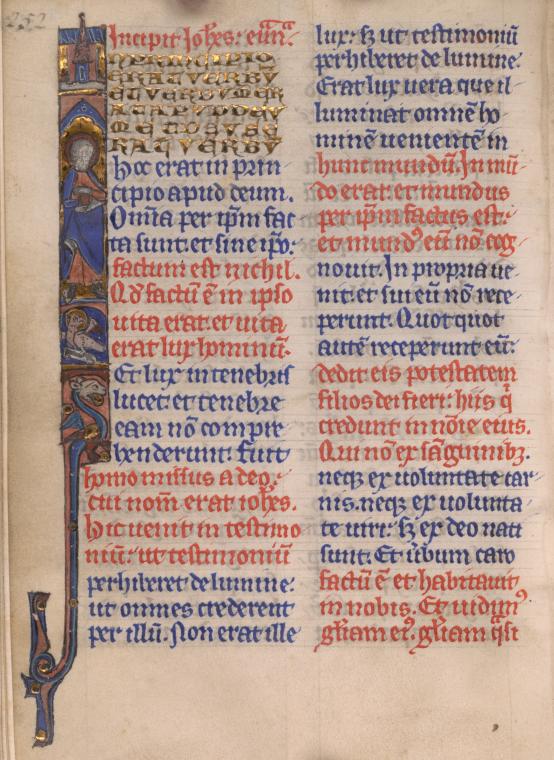 252
Incipit Ioħes: euãᵃ.
IN PRINCIPIO
ERAT VERBV
ET VERBVM ER
AT APVD DEV
M ET DEVS E
RAT VERBV
hoc erat in prin
cipio apud deum.
Om̃ia per ip̃m fac
ta sunt. et sine ip̃o:
factum est nichil.
Qđ factũ ẽ in ipso
uita erat. et uita
erat lux hominũ.
Et lux in tenebris
lucet: et tenebre
eam nõ compre
henderunt. fuit
homo missus a deo:
cui nom̃ erat ioħes.
hic uenit in testimo
niũ: ut testimoniũ
perhiberet de lumine:
ut omnes crederent
per illũ. Non erat ille
lux: sꝫ ut testimoniũ
perhiberet de lumine.
Erat lux uera que il
luminat omnẽ ho
minẽ uenientẽ in
hunc mundũ. In mũ
do erat. et mundus
per ip̃m factus est:
et mundꝰ eũ nõ cog
nouit. In propria ue
nit: et sui eũ nõ rece
perunt. Quot quot
autẽ receperunt eũ:
dedit eis potestatem
filios dei fieri: hiis q̃
credunt in nõie eius.
Qui nõ ex sãguinibꝫ.
neqꝫ ex uoluntate car
nis. neqꝫ ex uolunta
te uiri: sꝫ ex deo nati
sunt. Et ũbum caro
factũ ẽ et habitauit
in nobis. Et uidimꝰ
gl̃iam eiꝰ. gl̃iam q̃si